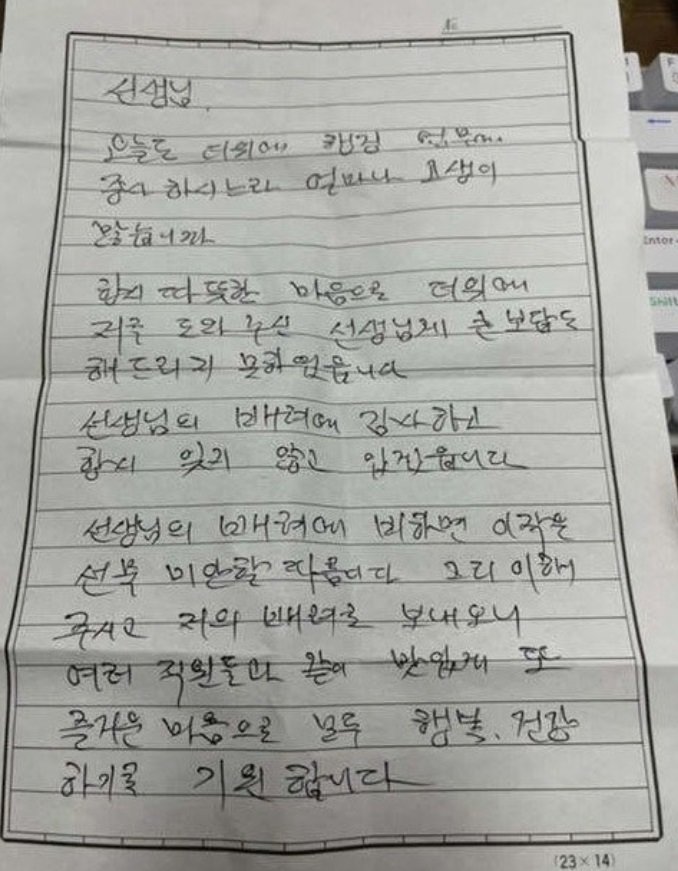 No
선생님.
오늘도 더위에
종사 하시느라 얼마나 고생이
많습니까
항시 따뜻한 마음으로 더위에
저를 도와주신 선생님께 큰 보답도
해드리지 못하였읍니다
선생님의 배려에 감사하고
항시 잊지 않고 있겠읍니다
선생님의 배려에 비하면 이 작은
선물 미안할 따름이다 그리 이해
주시고 저의 배려로 보내오니
여러 직원들과 같이 맛있게 또
즐거운 마음으로 모두 행복, 건강
하기를 기원 합니다
(23×14)
Enter
Shift